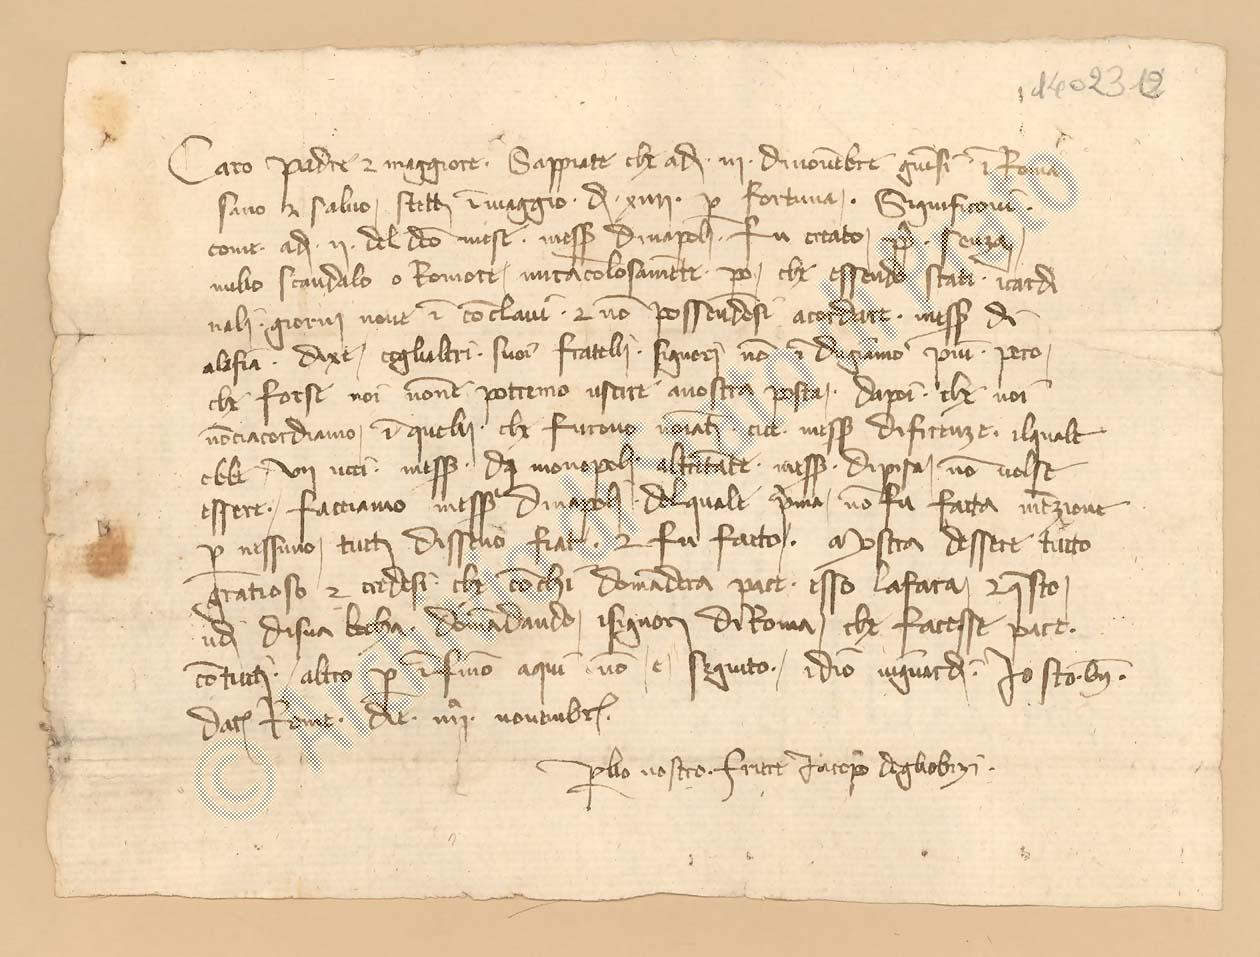 1402312
Caro padre ⁊ maggiore. Sappiate che adi .iii. dinovēbre giūsi ī Roma
sano ⁊ salvo, stetti ī viaggio .di. xiiii. p fortuna. Significovi.
come. adi .ii. del dcō mese. mess dinapoli. fu creato, pp. senza,
nullo scandalo o Romore, miracolosamēte. po, che essendo stati. icardi
nali. giorni nove ī cōclavi. ⁊ nō possendosi acordare. mess di
disse, eglialtri. suoi fratelli. signori nō ī dugiamo piu. pero,
che forse noi nonne potremo uscire anostra posta. dapoi. che noi
nōciacordiamo, ī quelli. che furono noīati. cioe. mess difirenze. ilquale
ebbe vii voci. mess. da monopoli altretāte. mess. dipisa, nō volse
essere. facciamo mess dinapoli. delquale prima, nō fu fatta mēzione
p nessuno, tutti disseno fiat. ⁊ fu facto. Mostra dessere tutto
gratioso ⁊ credesi che cōchi domādera pace. esso lafara, ⁊ qsto,
udi disua bocha. domādando, isignori diRoma, che facesse pace.
cōtutti. altro p īsino aqui nō e, seguito. idio viguardi. Io sto. bn.
Dat Rome. die. iiii. novembr.
Plo vostro. frate Jacopo degliobizi.